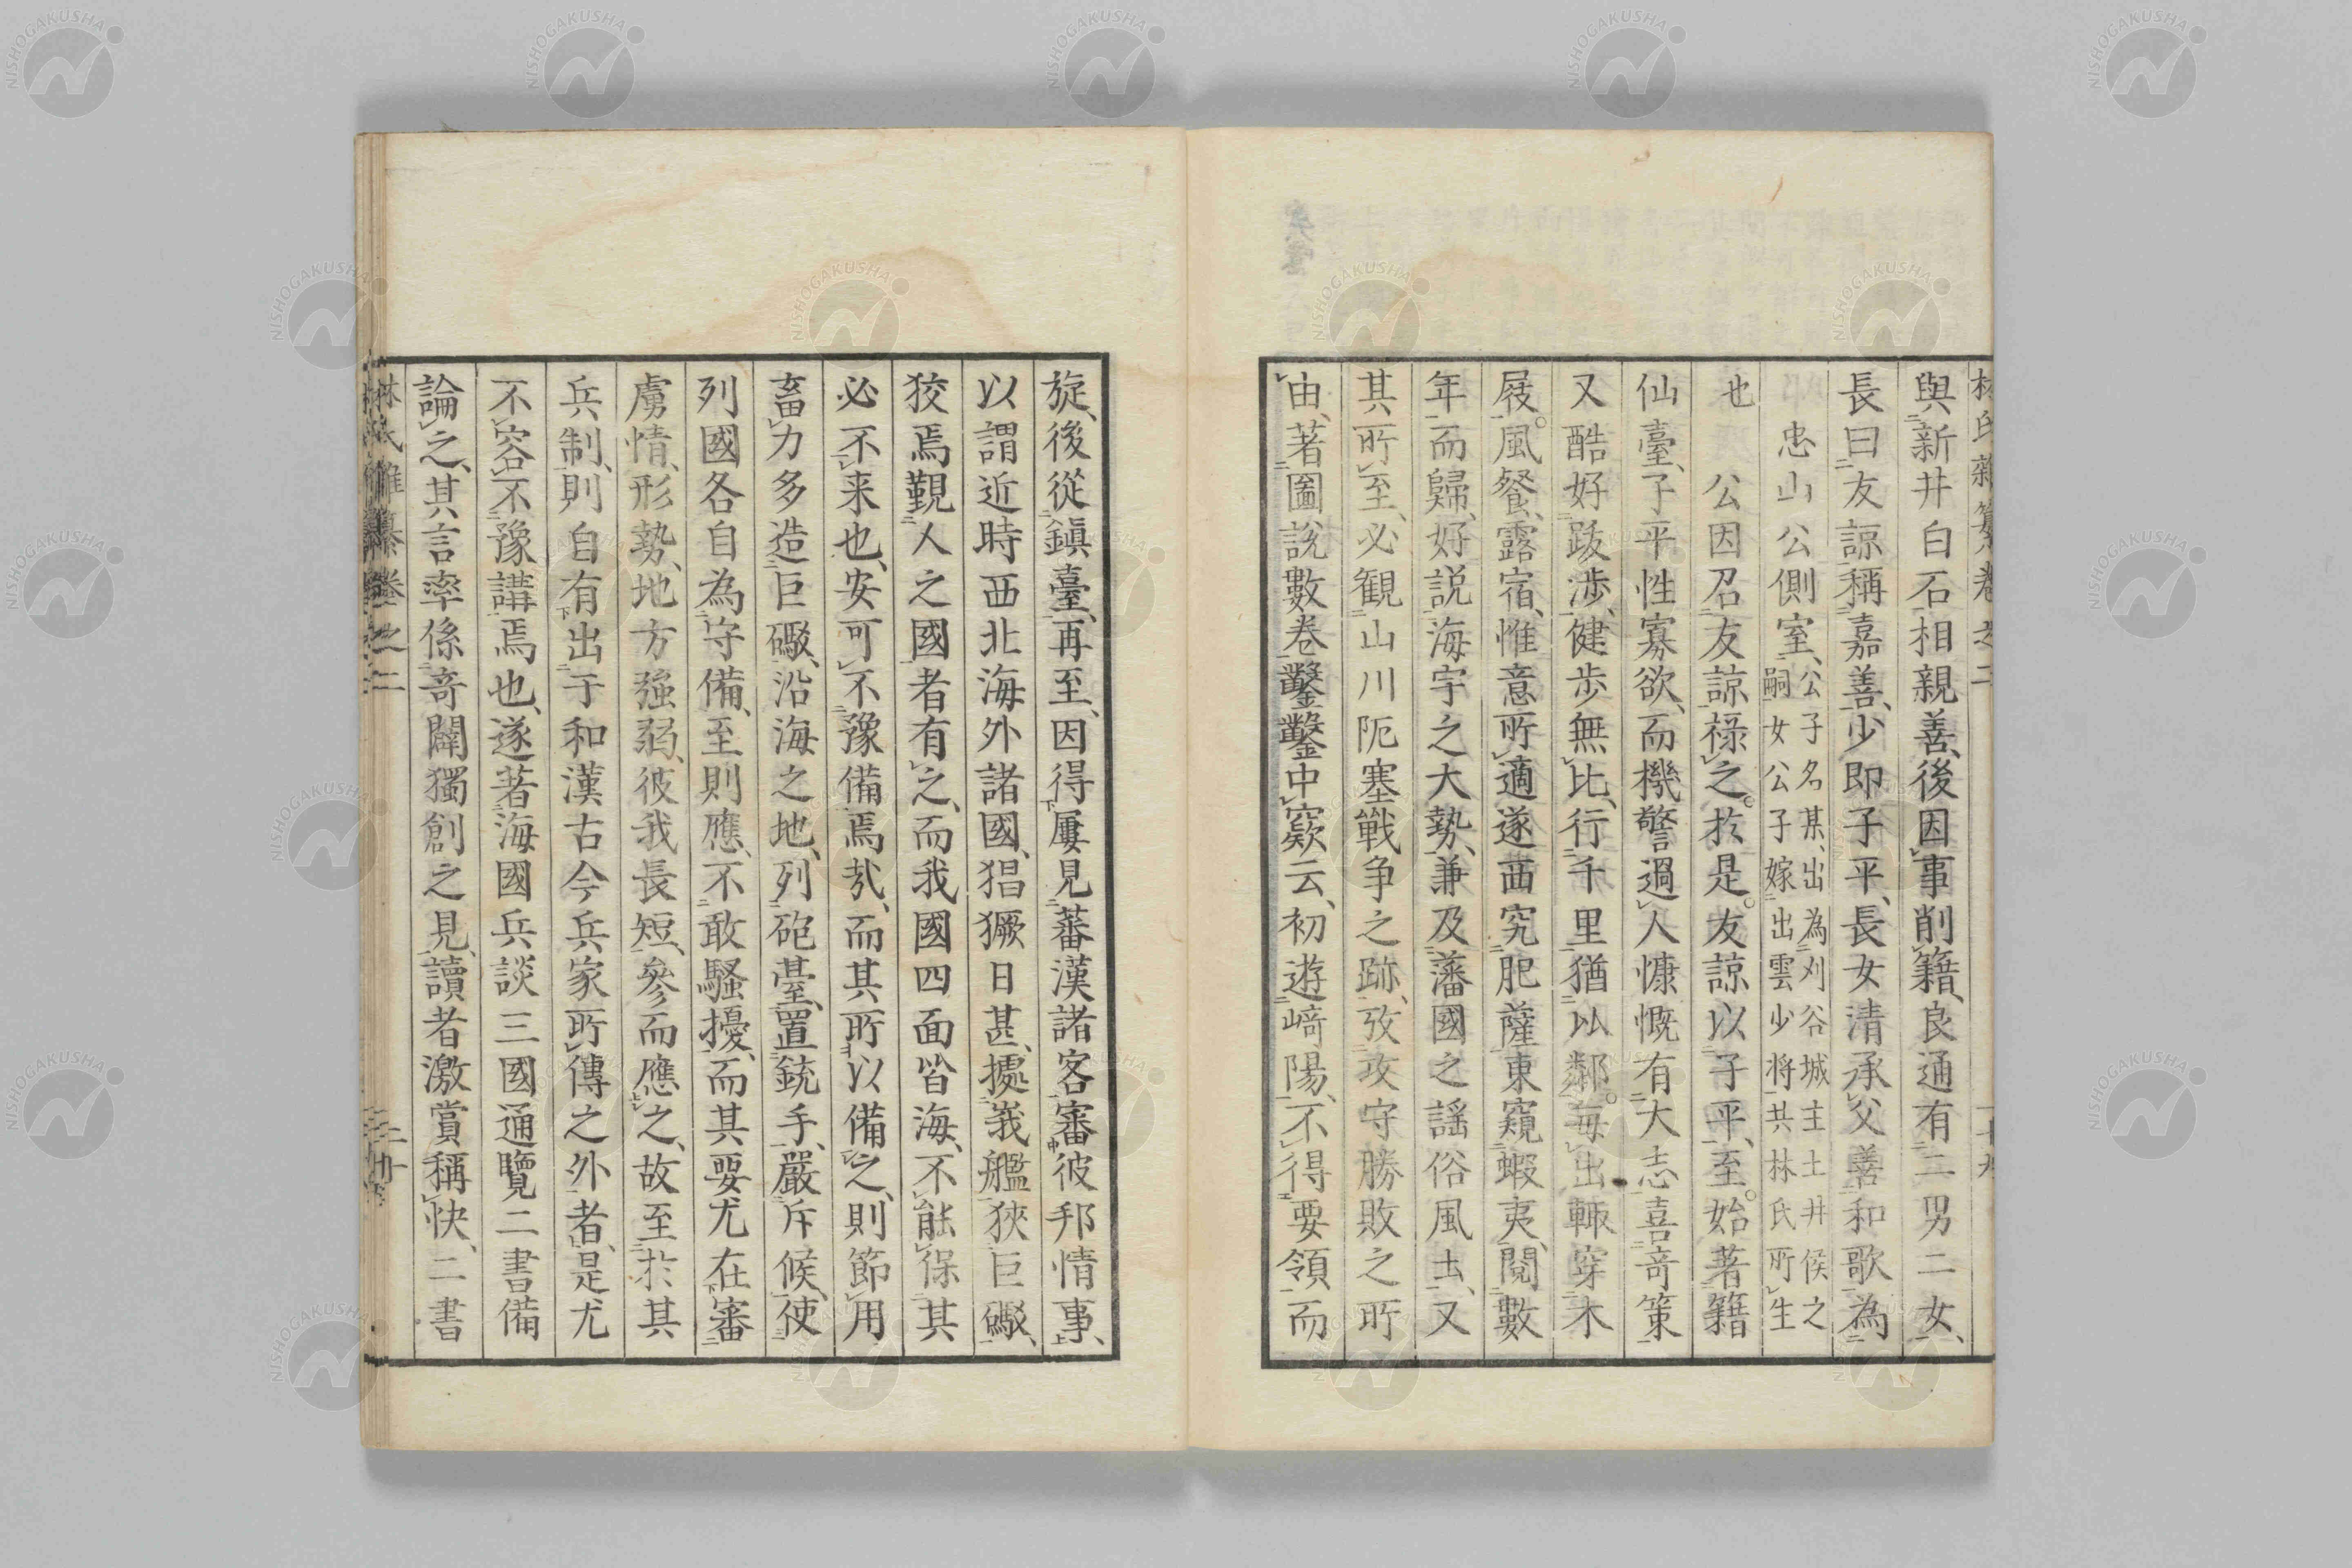 林氏雜纂卷之二
與新井白石相親善、後因事削籍、良通有二男二女、
長曰友諒稱嘉善、少即子平、長女清承父善和歌為
忠山公側室、公子名某、出為刈谷城主土井侯之嗣女公子嫁出雲少将共林氏所生
也
公因召友諒祿之。於是。友諒以子平、至。始著籍
仙臺、子平性寡欲、而機警過人慷慨有大志喜奇策
又酷好跋渉、健歩無比、行千里猶以鄰。毎出輙穿木
屐。風餐、露宿、惟意所適遂西究肥薩東窺蝦夷、閲數
年而歸、好説海宇之大勢、兼及藩國之謡俗風土、又
其所至、必観山川阨塞戰争之跡、攷攻守勝敗之所
由、著圖説數卷鑿鑿中窾云、初遊﨑陽、不得要領而
旋、後從鎮臺、再至、因得屢見蕃漢諸客審彼邦情事、
以謂近時西北海外諸國、猖獗日甚、據峩艦狹巨礮、
狡焉覬人之國者有之、而我國四面皆海、不能保其
必不来也、安可不豫備焉哉、而其所以備之、則節用
畜力多造巨礮、沿海之地、列砲臺、置銃手、嚴斥候、使
列國各自為守備、至則應、不敢騷擾、而其要尤在審
虜情、形勢、地方強弱、彼我長短、參而應之、故至於其
兵制、則自有出于和漢古今兵家所傳之外者、是尤
不容不豫講焉也、遂著海國兵談三國通覽二書備
論之、其言率係奇闢獨創之見、讀者激賞稱快、二書
林氏雜纂卷之二
二十
NISHOGAKUSHA